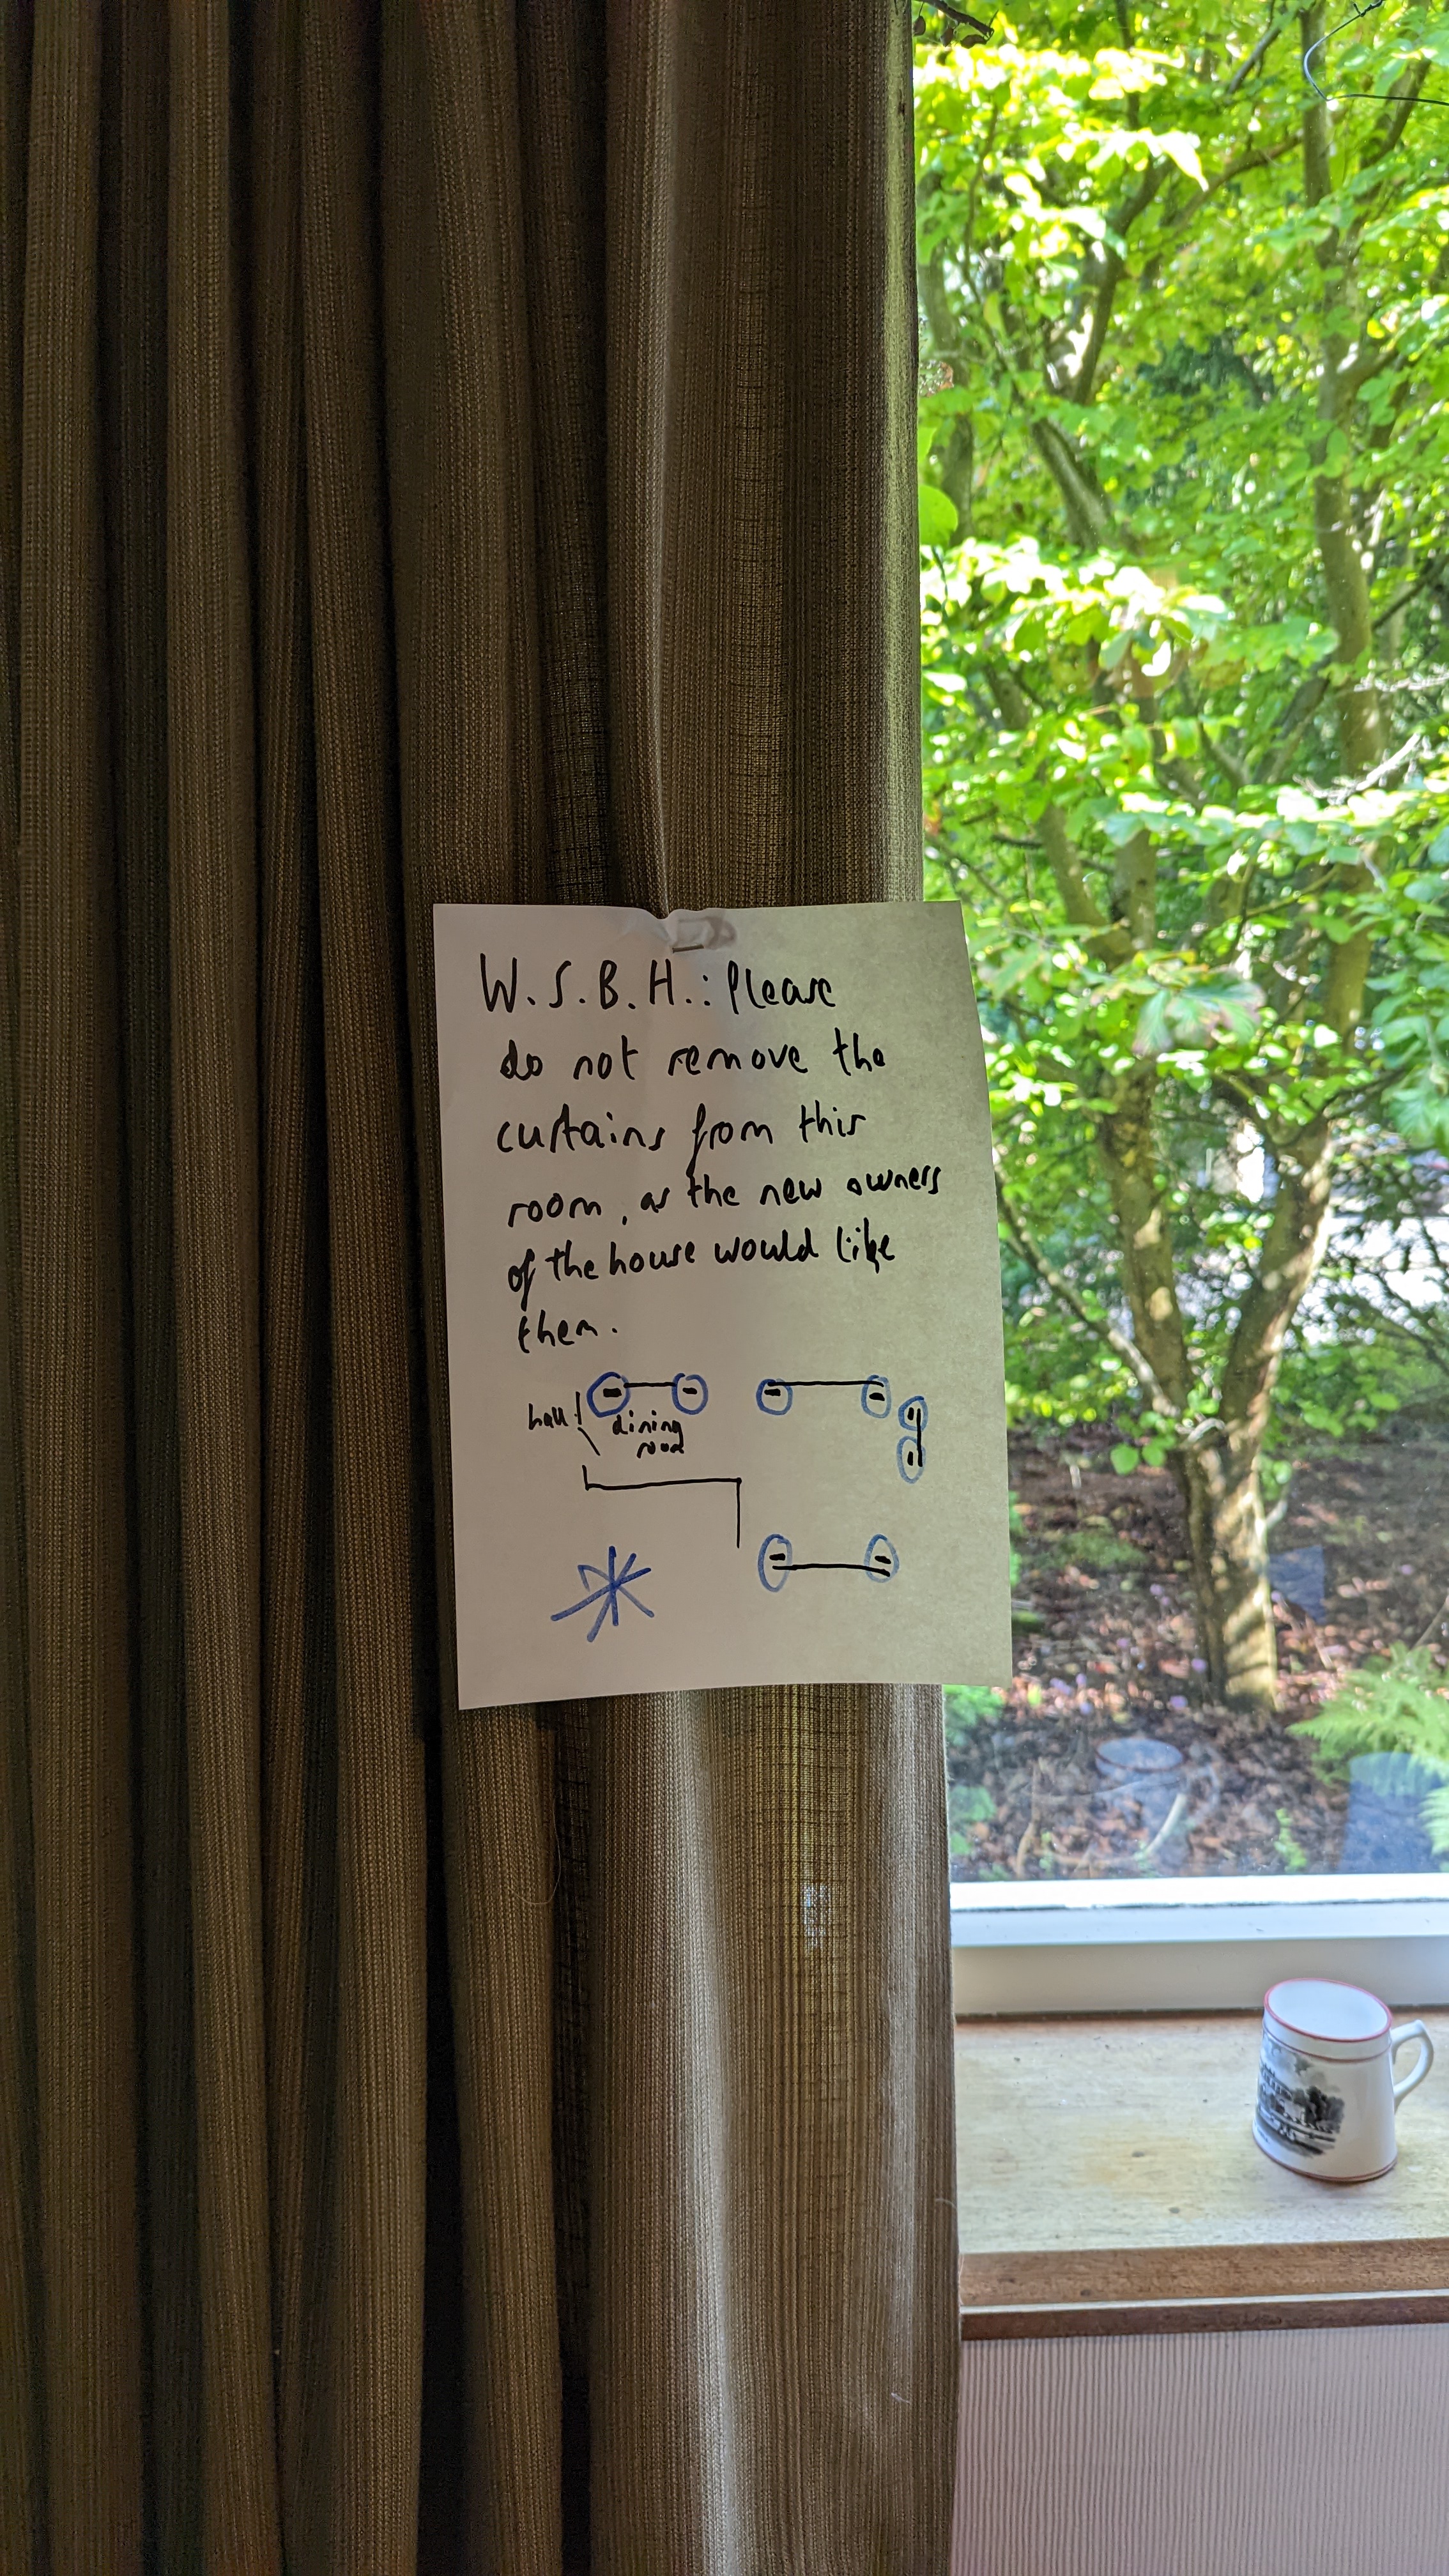 W.S.B.H.: Please
do not remove the
curtains from this
room, as the new owners
of the house would like
them.
hall
dining
room